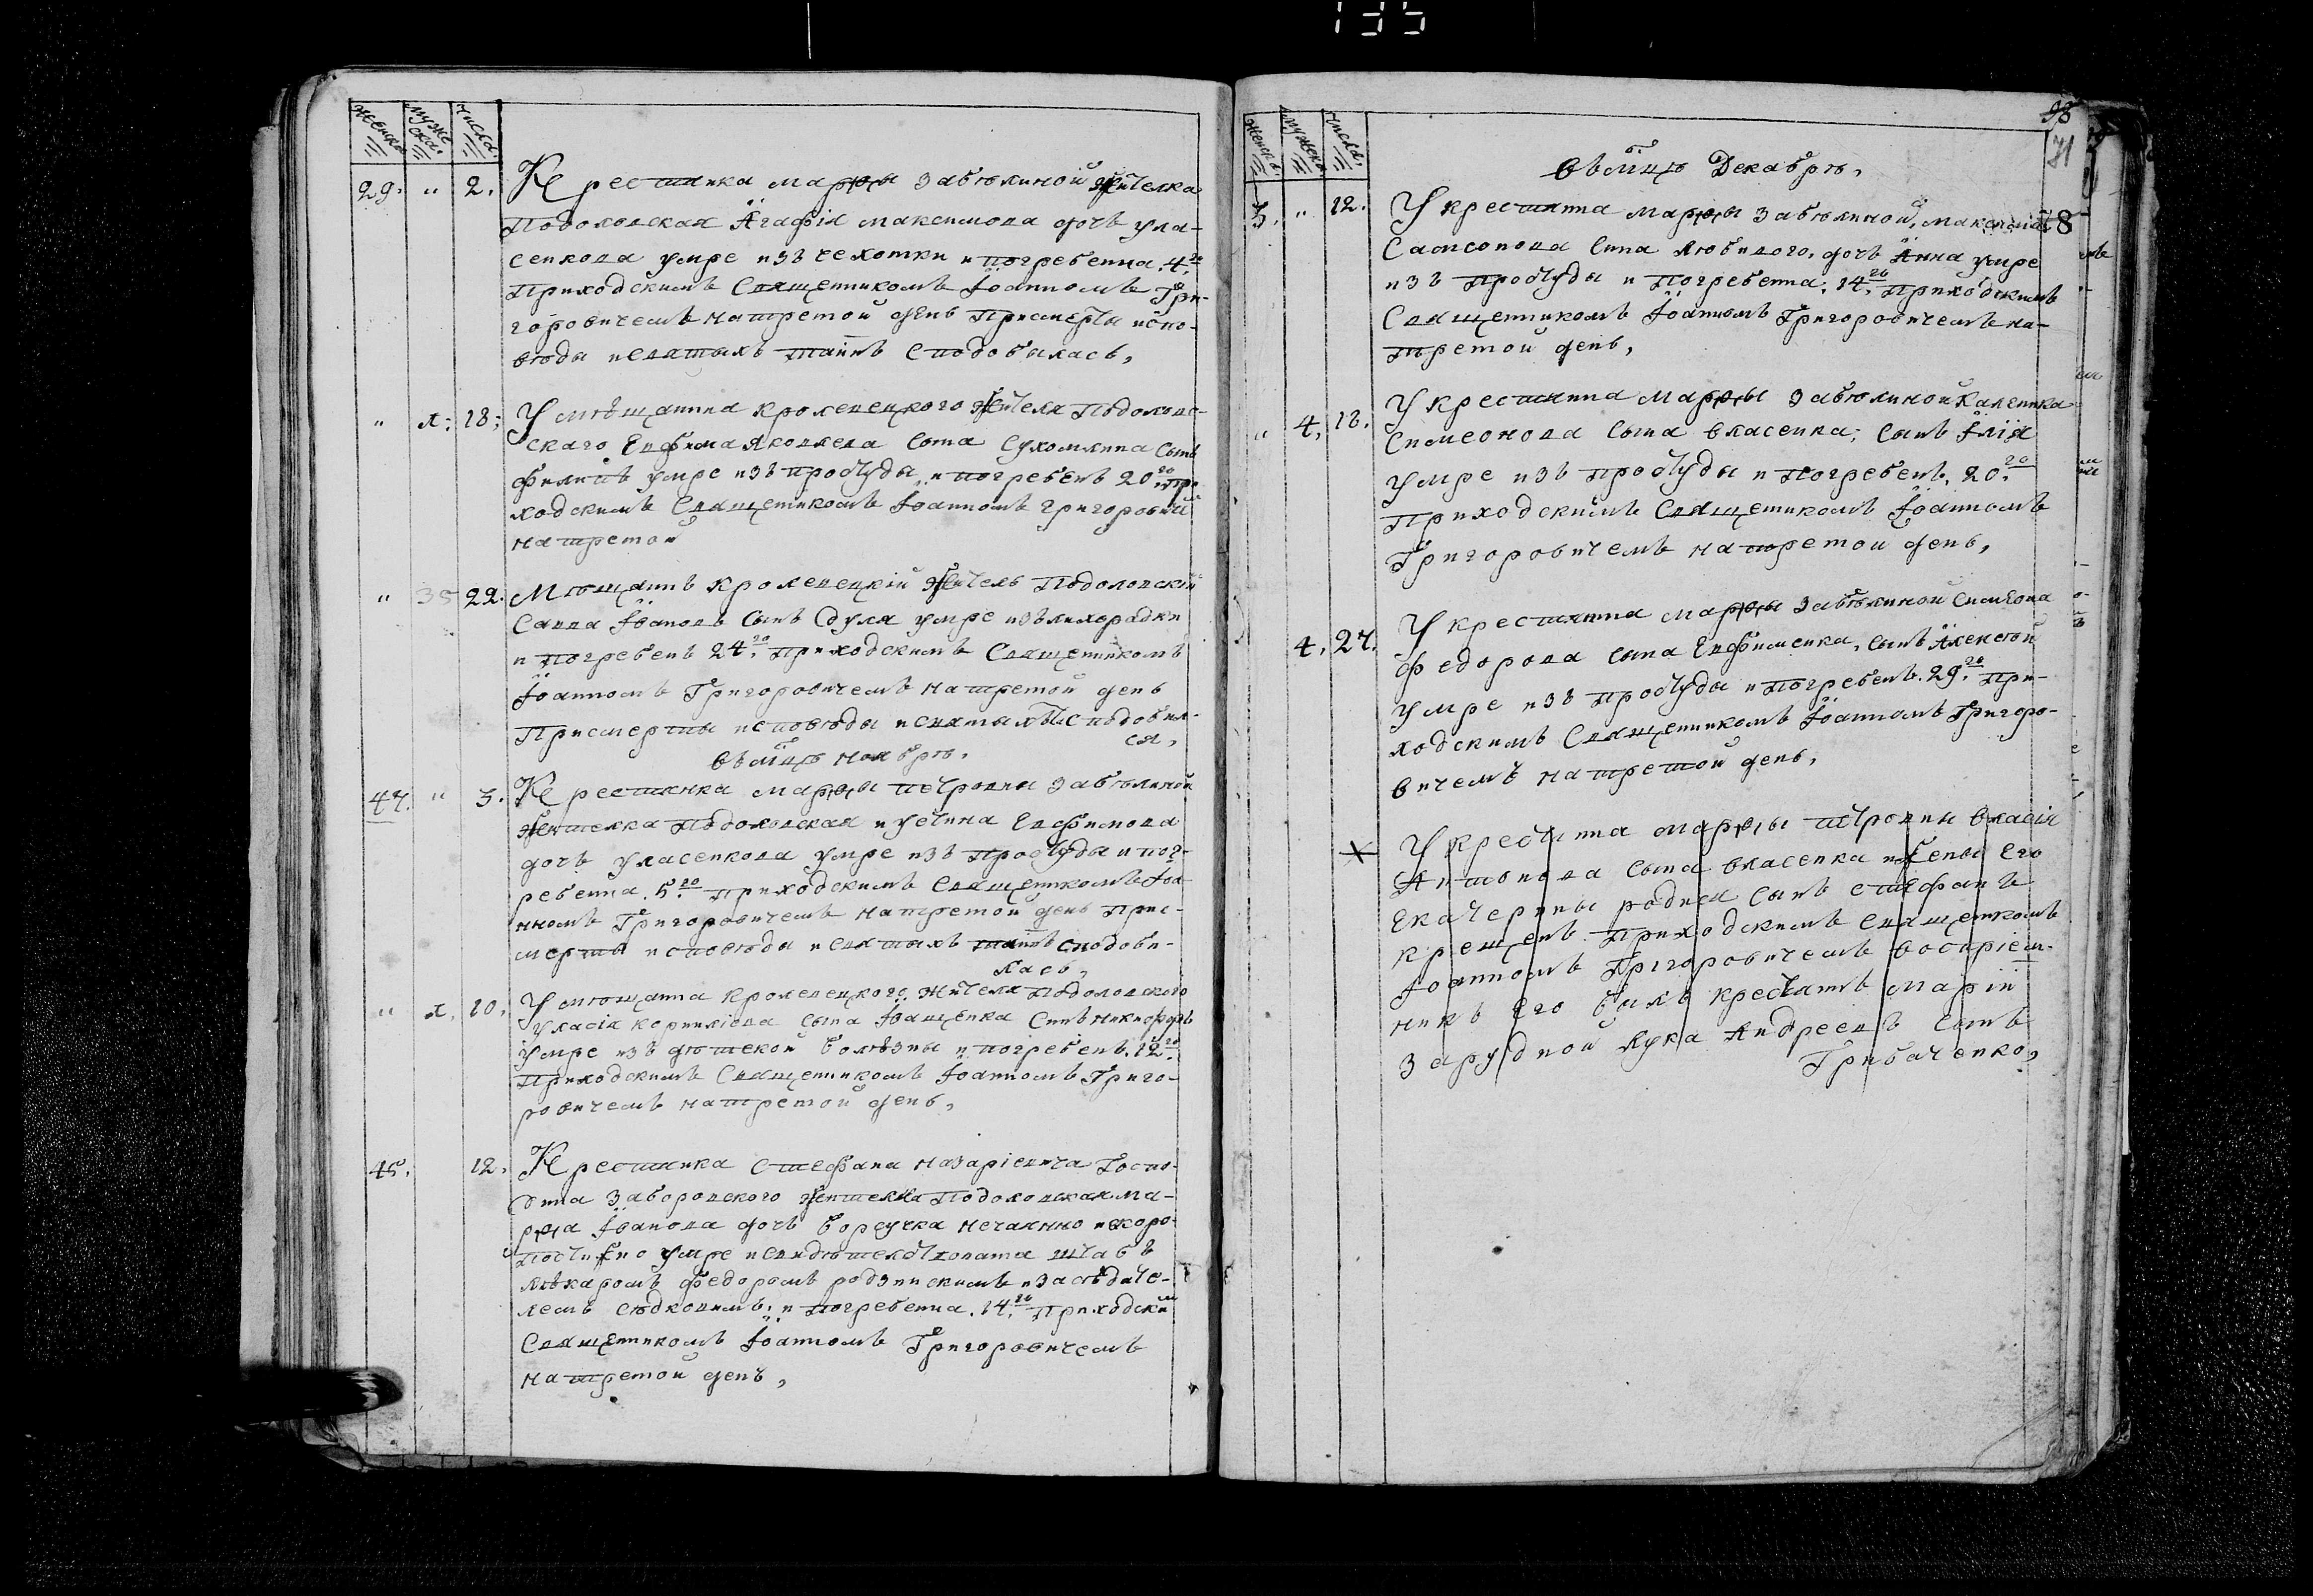 135
женска
мужеска.
Числа.
29. " 2. Крестянка марѳы забѣлиной жителка
Подоловская Агафія максимова дочь ула-
сенкова умре изъ чехотки и погребенна. 4.го
Приходскимъ Священникомъ Іоанномъ Гри-
горовичемъ натретой день Присмерты испо-
вѣды исвятыхъ таинъ сподобилась,
" 1: 18: Умѣщанина кролевецкого жителя Подоловс-
скаго Евфима яковлева сына Сухомлина сынъ
филипъ умре изъ простуды и погребенъ 20.го при
ходскимъ Священикомъ Іоанномъ Григоровичм
натретой
" 35 22. Мѣщанинъ кролевецкій житель Подоловскій
Савва Іоановъ сынъ сдуля умре изълихорадки
и погребенъ 24.го Приходскимъ Священникомъ
Іоанномъ Григоровичемъ натретой день
Присмерты исповѣды исвятыхъ сподобил-
ся,
вмсцѣ ноябрѣ.
47. " 3. Крестянка марѳы петровны забѣлиной
жителка Подоловская Евфимова
дочь уласенкова умре изъ простуды и пог-
ребенна. 5.го Приходскимъ Священикомъ Іоа-
нномъ Григоровичемъ натретой день Прис-
мерты исповѣды исвятыхъ таинъ сподоби-
лась,
" 1. 10. Умѣщанина кролевецкого жителя Подоловского
Уласія корниліова сына Іващенка Синъ никифоръ
умре изъ дѣтской болѣзны и погребенъ. 12.го
Приходскимъ Священникомъ Іоанномъ Григо-
ровичемъ натретой день,
45. 12. Крестянка стефана назаріевича Госпо-
дина забородского жителка Подоловская ма-
рѳа Іоанова дочь борсучка нечаянно искоро-
постижно умре исвидѣтелствована штабъ
лѣкаромъ федоромъ родзинскимъ изасѣдате-
лемъ сюдковимъ; и погребенна. 14.го Приходским
Священникомъ Іоанномъ Григоровичемъ
натретой день,
98
71
женска
мужеска
числа.
вмсцѣ Декабрѣ,
78
3. " 12. Укрестянина марѳы забѣлиной, максима
Самсонова сина любивого, дочь Анна умре
изъ простуды и погребенна. 14.го Приходскимъ
Священникомъ Іоанномъ Григоровичемъ на-
третой день,
" 4. 18. Укрестянина марѳы забѣлиной
Симеонова сына власенка; сынъ Илія
умре изъ простуды и погребенъ. 20.го
Приходскимъ Священикомъ Іоанномъ
Григоровичемъ натретой день,
4. 27. Укрестянина марѳы забѣлиной Симеона
федорова сына Евфименка, сынъ Алексѣй
умре изъ простуды и погребенъ. 29.го При-
ходскимъ Священникомъ Іоанномъ Григоро-
вичемъ натретой день,
Укрестянина марѳы петровны власія
Антонова сына власенка ижены его
Екатерины родися сынъ стефанъ
крещенъ Приходскимъ священикомъ
Іоанномъ Григоровичемъ воспріем-
никъ его былъ крестянинъ маріи
зарудной лука Андреевъ сынъ
Грибаченко,